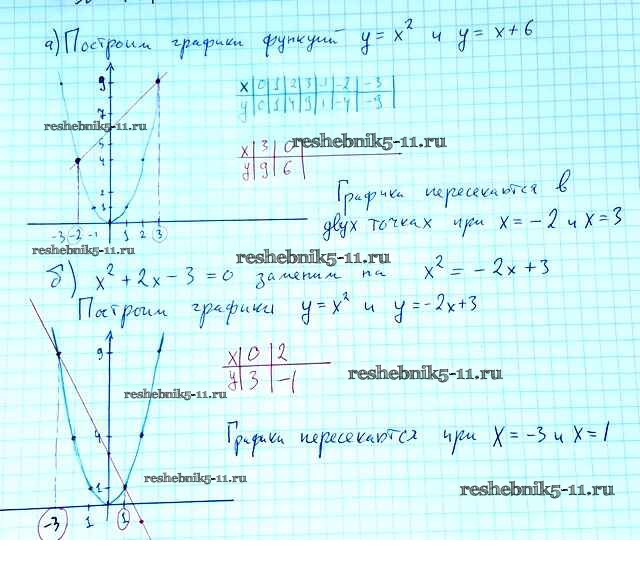 а) Построим графики функций y = x² и y = x+6
9
7
5
4
2
1
-3 -2 -1 1 2 3
x|0|1|2|3|-1|-2|-3
y|0|1|4|9|1|-4|-9
x|3|0
y|9|6
reshebnik5-11.ru
reshebnik5-11.ru
Графики пересекаются в
двух точках при x = -2 и x = 3
reshebnik5-11.ru
reshebnik5-11.ru
б) x² + 2x - 3 = 0 заменим на x² = -2x + 3
Построим графики y = x² и y = -2x+3
9
4
1
-3 1 1
x|0|2
y|3|-1
reshebnik5-11.ru
reshebnik5-11.ru
Графики пересекаются при x = -3 и x = 1
reshebnik5-11.ru
reshebnik5-11.ru